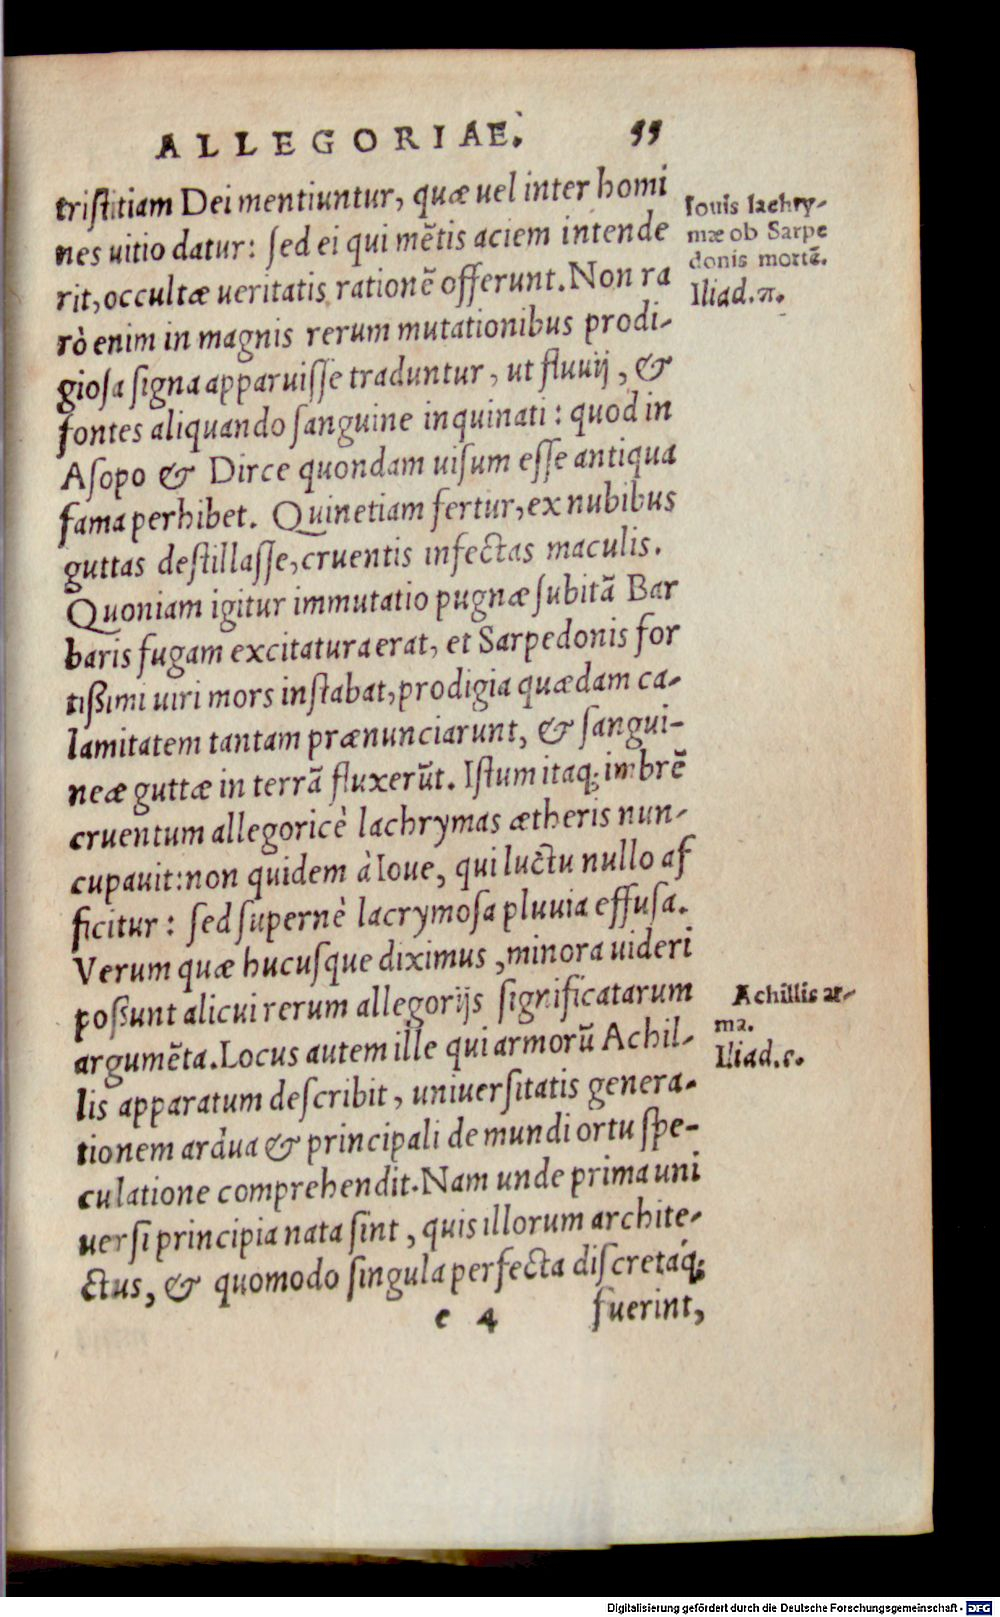 ALLEGORIAE. 55
tristitiam Dei mentiuntur, quæ uel inter homi
nes uitio datur: sed ei qui mẽtis aciem intende
rit, occultæ ueritatis rationẽ offerunt. Non ra
rò enim in magnis rerum mutationibus prodi-
giosa signa apparuisse traduntur, ut fluuij, &
fontes aliquando sanguine inquinati: quod in
Asopo & Dirce quondam uisum esse antiqua
fama perhibet. Quinetiam fertur, ex nubibus
guttas destillasse, cruentis infectas maculis.
Quoniam igitur immutatio pugnæ subitã Bar
baris fugam excitatura erat, et Sarpedonis for
tißimi uiri mors instabat, prodigia quædam ca-
lamitatem tantam prænunciarunt, & sangui-
neæ guttæ in terrã fluxerũt. Istum itaq; imbrẽ
cruentum allegoricè lachrymas ætheris nun-
cupauit: non quidem à Ioue, qui luctu nullo af
ficitur: sed supernè lacrymosa pluuia effusa.
Verum quæ hucusque diximus, minora uideri
possunt alicui rerum allegorijs significatarum
argumẽta. Locus autem ille qui armorũ Achil-
lis apparatum describit, uniuersitatis genera-
tionem ardua & principali de mundi ortu spe-
culatione comprehendit. Nam unde prima uni
uersi principia nata sint, quis illorum archite-
ctus, & quomodo singula perfecta discretáq;
e 4 fuerint,
Iouis lachry-
mæ ob Sarpe
donis mortẽ.
Iliad. π.
Achillis ar-
ma.
Iliad. σ.
Digitalisierung gefördert durch die Deutsche Forschungsgemeinschaft - DFG